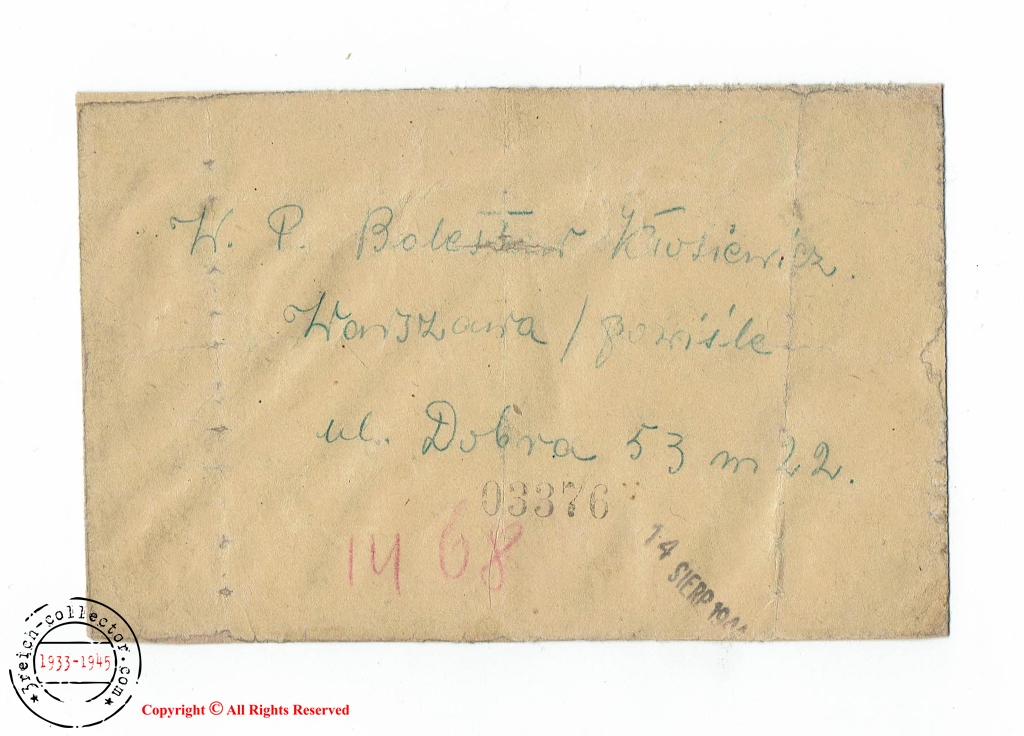 W. P. Bolesław Kłosiewicz.
Warszawa / powiśle
ul. Dobra 53 m 22.
03376
14 68
14 SIERP 1944
3reich-collector.com
1933-1945
Copyright © All Rights Reserved